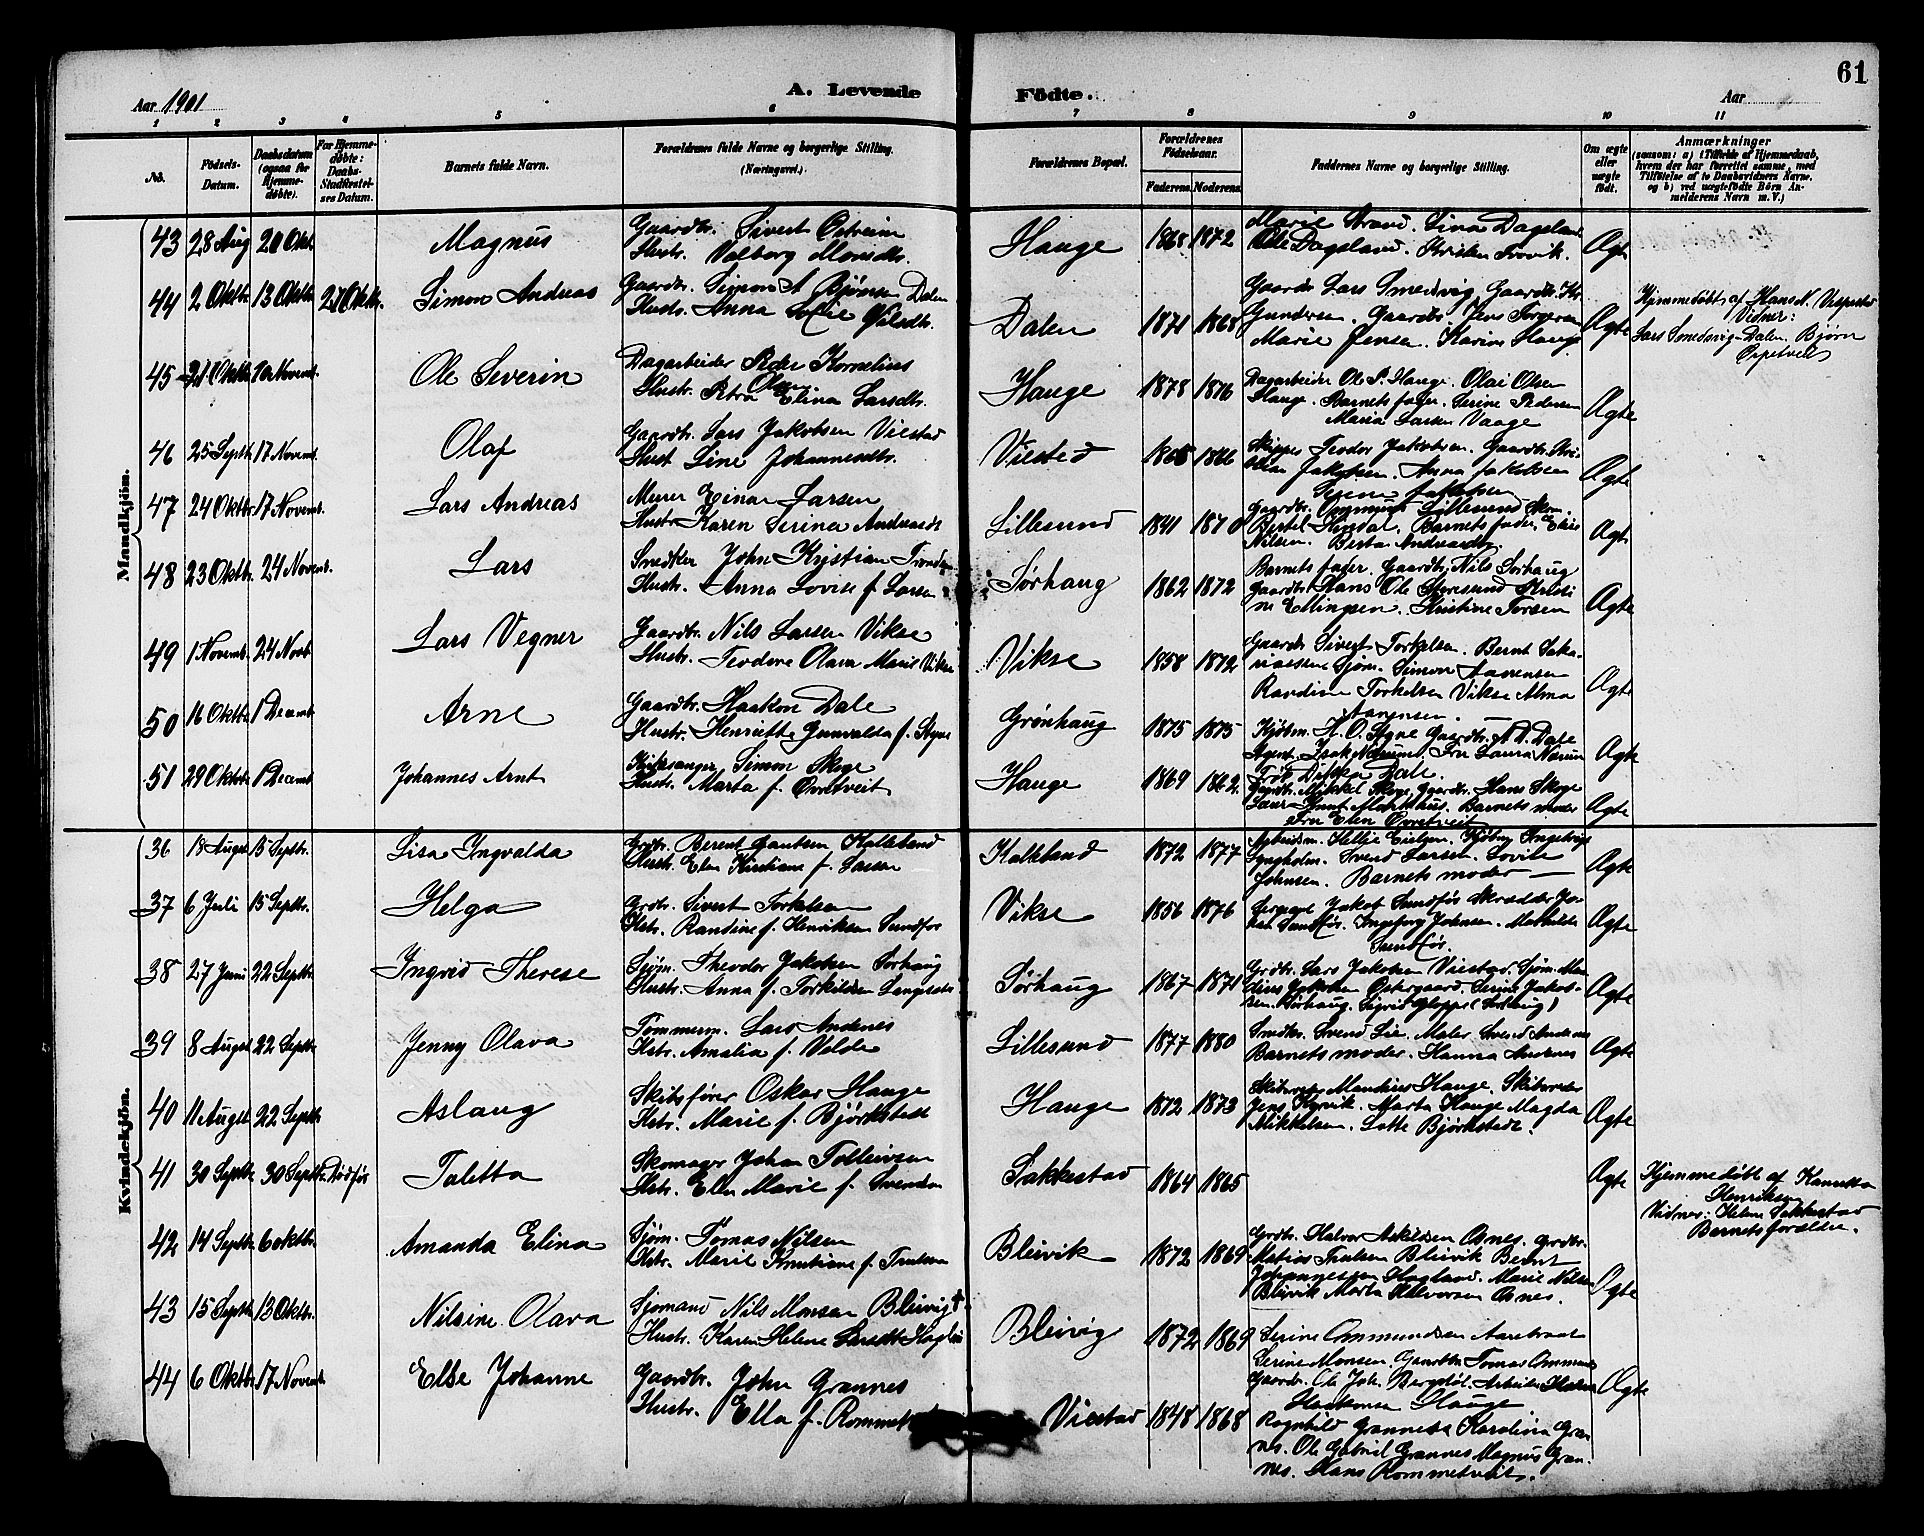 61
Aar 1901
A. Levende
Födte.
Aar
1 2 3 4 5 6 7 8 9 10 11
No.
Födsels-Datum.
Daabsdatum (ogsaa for Hjemme-döbte).
For Hjemme-döbte: Daabs-Stadfæstelses Datum.
Barnets fulde Navn.
Forældrenes fulde Navne og borgerlige Stilling. (Næringsvei.)
Forældrenes Bopæl.
Forældrenes Födselsaar.
Faderens. Moderens.
Faddernes Navne og borgerlige Stilling.
Om ægte eller uægte födt.
Anmærkninger
(saasom: a) i Tilfælde af Hjemmedaab, hvem der har forrettet samme, med Tilföielse af to Daabsvidners Navne, og b) ved uægtefödte Börn Anmelderens Navn m. V.)
Mandkjön.
43 28 Aug 20 Okt. Magnus
Gaardbr. Sivert Østreim
Hustr. Valborg Monsdtr.
Hauge 1868 1872
Marie Strand. Sina Dagsland
Ole Dagsland. Kristen Trovik. Ægte
44 2 Oktbr 13 Oktbr 27 Oktbr. Simon Andreas
Gaardbr. Simon A Bjørnsen Dalen
Hustr. Anna Nilsdtr.
Dalen 1871 1868
Gaardbr Lars Smedsvig Gaardbr. Kr.
Gundersen. Gaardbr Jens Torgersen
Marie Jensen. Karine Hauge Ægte
Hjemmedöbt af Hans N.
Vidner:
Lars Smedsvig Dalen. Bjørn
45 21 Oktbr 10 Novemb. Ole Severin
Dagarbeider Peder Kornelius
Olsen.
Hustr. Petra Elina Larsdtr.
Hauge 1878 1876
Dagarbeider Ole P. Hauge. Olai Olsen
Hauge. Barnets fader. Serine Pedersen
Maria Larsen Vaage Ægte
46 25 Septbr 17 Novemb. Olaf
Gaardbr. Lars Jakobsen Viestad
Hust Line Johannesdtr.
Viestad 1865 1866
Skipper Teodor Jakobsen. Gaardbr. Kri-
stian Jakobsen. Anna Jakobsen
Jakobsen Ægte
47 24 Oktbr 17 Novemb. Lars Andreas
Murer Einar Larsen
Hustr Karen Serina Andreasdt
Lillesund 1841 1870
Gaardbr. Ommund Lillesund
Bertil Barnets fader, Elise
Nilsen. Berta Andreasdtr. Ægte
48 23 Oktbr 24 Novemb. Lars
Snedker John Kristian
Hustr. Anna Lovise f Larsen
Sørhaug 1862 1872
Barnets fader. Gaardbr. Nils Sørhaug
Gaardbr Hans Ole Kristi
ne Ellingsen. Kristine Torsen Ægte
49 1 Novemb. 24 Novb. Lars Vegner
Gaardbr. Nils Larsen Vikse
Hustr. Teodore Olava Marie Vikse
Vikse 1858 1872
Gaardbr Sivert Torkelsen. Bernt Saka-
riassen Sjøm. Simon Aanensen
Randine Torkelsen Vikse Alma
Aanensen. Ægte
50 16 Oktbr 1 Decemb. Arne
Gaardbr. Haakon Dale
Hustr. Henriette Gunvalda f. Styve
Grønhaug 1875 1875
Kjøbm. H. O. Styve Gaardbr. A. O. Dale
Agent. Isak Fru Laura
Dale. Ægte
51 29 Oktbr 1 Decemb. Johannes Arnt
Kirkesanger Simon Skoge
Hustr. Marta f. Øvretveit
Hauge 1869 1862
Gaardbr. Mikkel Skoge Gaardbr. Hans Skoge
Knut Barnets moder
Fru Elen Øvretveit Ægte
Kvindekjön.
36 18 August 15 Septbr. Lisa Ingvalda
Grdbr. Berent Gautsen Kalleland
Hustr. Elen Kirstiane f. Larsen
Kalleland 1872 1877
Arbeidsm. Eielsen.
Svend Larsen. Lovise
Johnsen. Barnets moder Ægte
37 6 Juli 15 Septbr. Helga
Grdbr. Sivert Torkelsen
Hstr. Randine f. Henriksen Sundfør
Vikse 1856 1876
Jakob Sundfør Skrædder Jo-
han Sundfør. Ingeborg Johnsen. Mathilde
Sundfør. Ægte
38 27 Juni 22 Septbr. Ingrid Therese
Sjøm. Theodor Jakobsen Sørhaug
Hustr. Anna f. Torkildsen
Sørhaug 1867 1871
Grdbr. Lars Jakobsen Viestad. Sjøm.
Jakobsen Østergaard. Serine Jakob-
sen. Sørhaug. Sigrid (Sørhaug) Ægte
39 8 August 22 Septbr Jenny Olava
Tømmerm. Lars Andenes
Hstr. Amalia f. Valde
Lillesund 1877 1880
Snedkr. Svend Lie. Maler Svend Andenes
Barnets moder. Hanna Andenes Ægte
40 11 August 22 Septbr Aslaug
Skibsfører Oskar Hauge
Hstr. Marie f. Bjørkstedt
Hauge 1872 1873
Skibsreder Mandius Hauge. Skibsreder
Jens Kyvik. Marta Hauge Magda
Mikkelsen. Lotte Bjørkstedt. Ægte
41 30 Septbr 30 Septbr Død før Taletta
Skomager Johan Tolleivsen
Hstr. Elen Marie f. Svendsen
Sakkestad 1864 1865
Ægte
Hjemmedöbt af
Henriksen
Vidner: Helene Sakkestad
Barnets forældre.
42 14 Septbr 6 oktbr. Amanda Elina
Sjøm. Tomas Nilsen
Hstr. Marie Knutiane f. Trulsen
Bleivik 1872 1869
Grdbr. Halvor Askildsen Aksnes. Grdbr.
Matias Trulsen Bleivik Bernt
Johannessen Hagland. Marie Nilsen
Bleivik Marta Halvorsen Aksnes. Ægte
43 15 Septbr 13 Oktbr. Nilsine Olava
Sjømand Nils Monsen Bleivig †
Hustr. Karen Helene Larsdtr
Bleivig 1872 1869
Serine Ommundsen Aarstraat
Serine Monsen. Gaardbr Tomas Ommunds
Gaardbr. Ole Joh. Bergstøl. Arbeider
Hauge Ægte
44 6 Oktbr 17 Novemb. Else Johanne
Gaardbr. John Grannes
Hustr. Ella f. Rommetveit
Viestad 1848 1868
Ragnhild Grannes Karolina Gran-
nes. Ole Gabriel Grannes Magnus Gran-
nes. Hans Rommetveit.